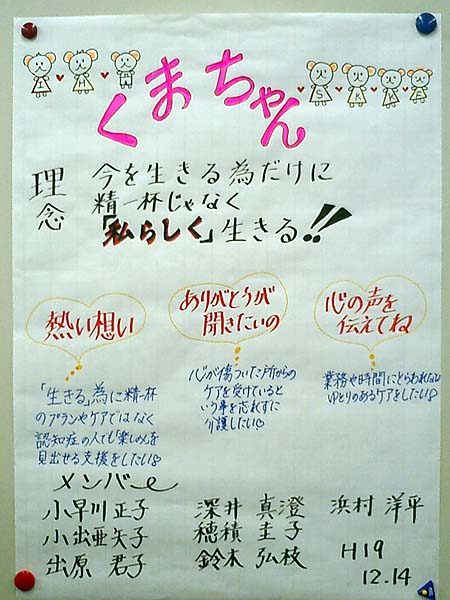 くまちゃん
理念
今を生きる為だけに
精一杯じゃなく
「私らしく」生きる!!
熱い想い
「生きる」為に精一杯
のプランやケアではなく
認知症の人でも「楽しみ」を
見出せる支援をしたい♡
ありがとうが
聞きたいの
心が傷ついた所からの
ケアを受けていると
いう事を忘れずに
介護したい♡
心の声を
伝えてね
業務や時間にとらわれない
ゆとりのあるケアをしたい♡
メンバー
小早川 正子
小出 亜矢子
出原 君子
深井 真澄
穂積 圭子
鈴木 弘枝
浜村 洋平
H19
12.14